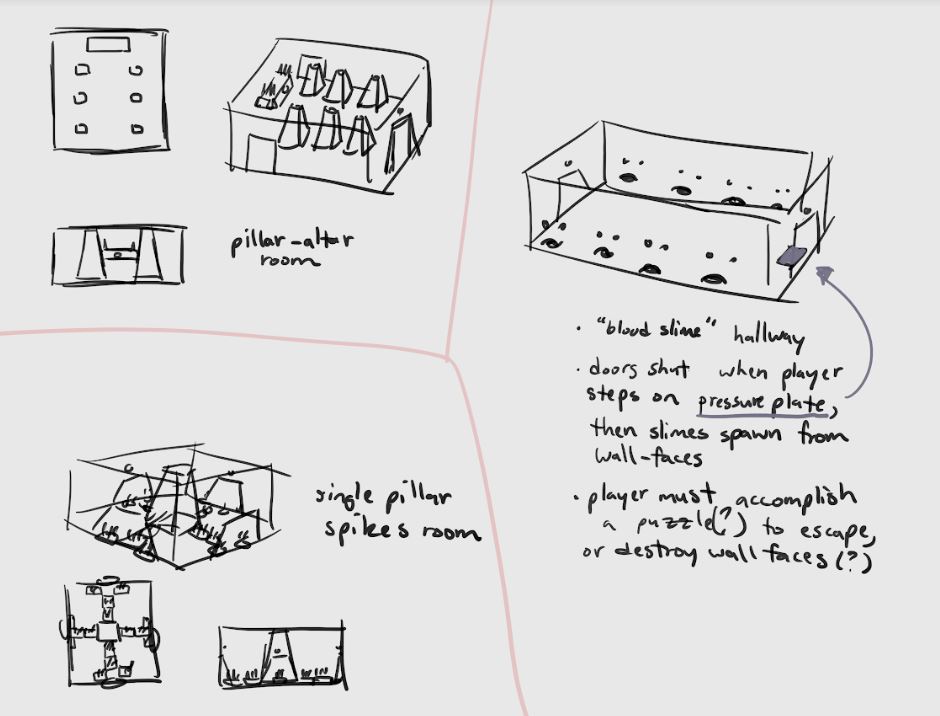 pillar-altar
room
single pillar
spikes room
• "blood slime" hallway
• doors shut when player
steps on pressure plate,
then slimes spawn from
wall-faces
• player must accomplish
a puzzle(?) to escape,
or destroy wall faces (?)